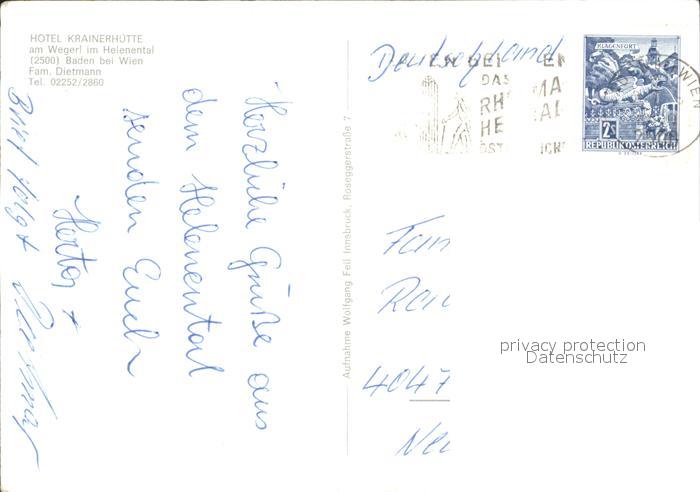 HOTEL KRAINERHÜTTE
am Wegerl im Helenental
(2500) Baden bei Wien
Fam. Dietmann
Tel. 02252/2860
Herzliche Grüße aus
dem Helenental
senden Euch
Herta +
Brief folgt
Aufnahme Wolfgang Feil Innsbruck, Roseggerstraße 7
Deutschland
DAS
HE
WIEN
KLAGENFURT
2S
REPUBLIK ÖSTERREICH
Fam
4047
privacy protection
Datenschutz